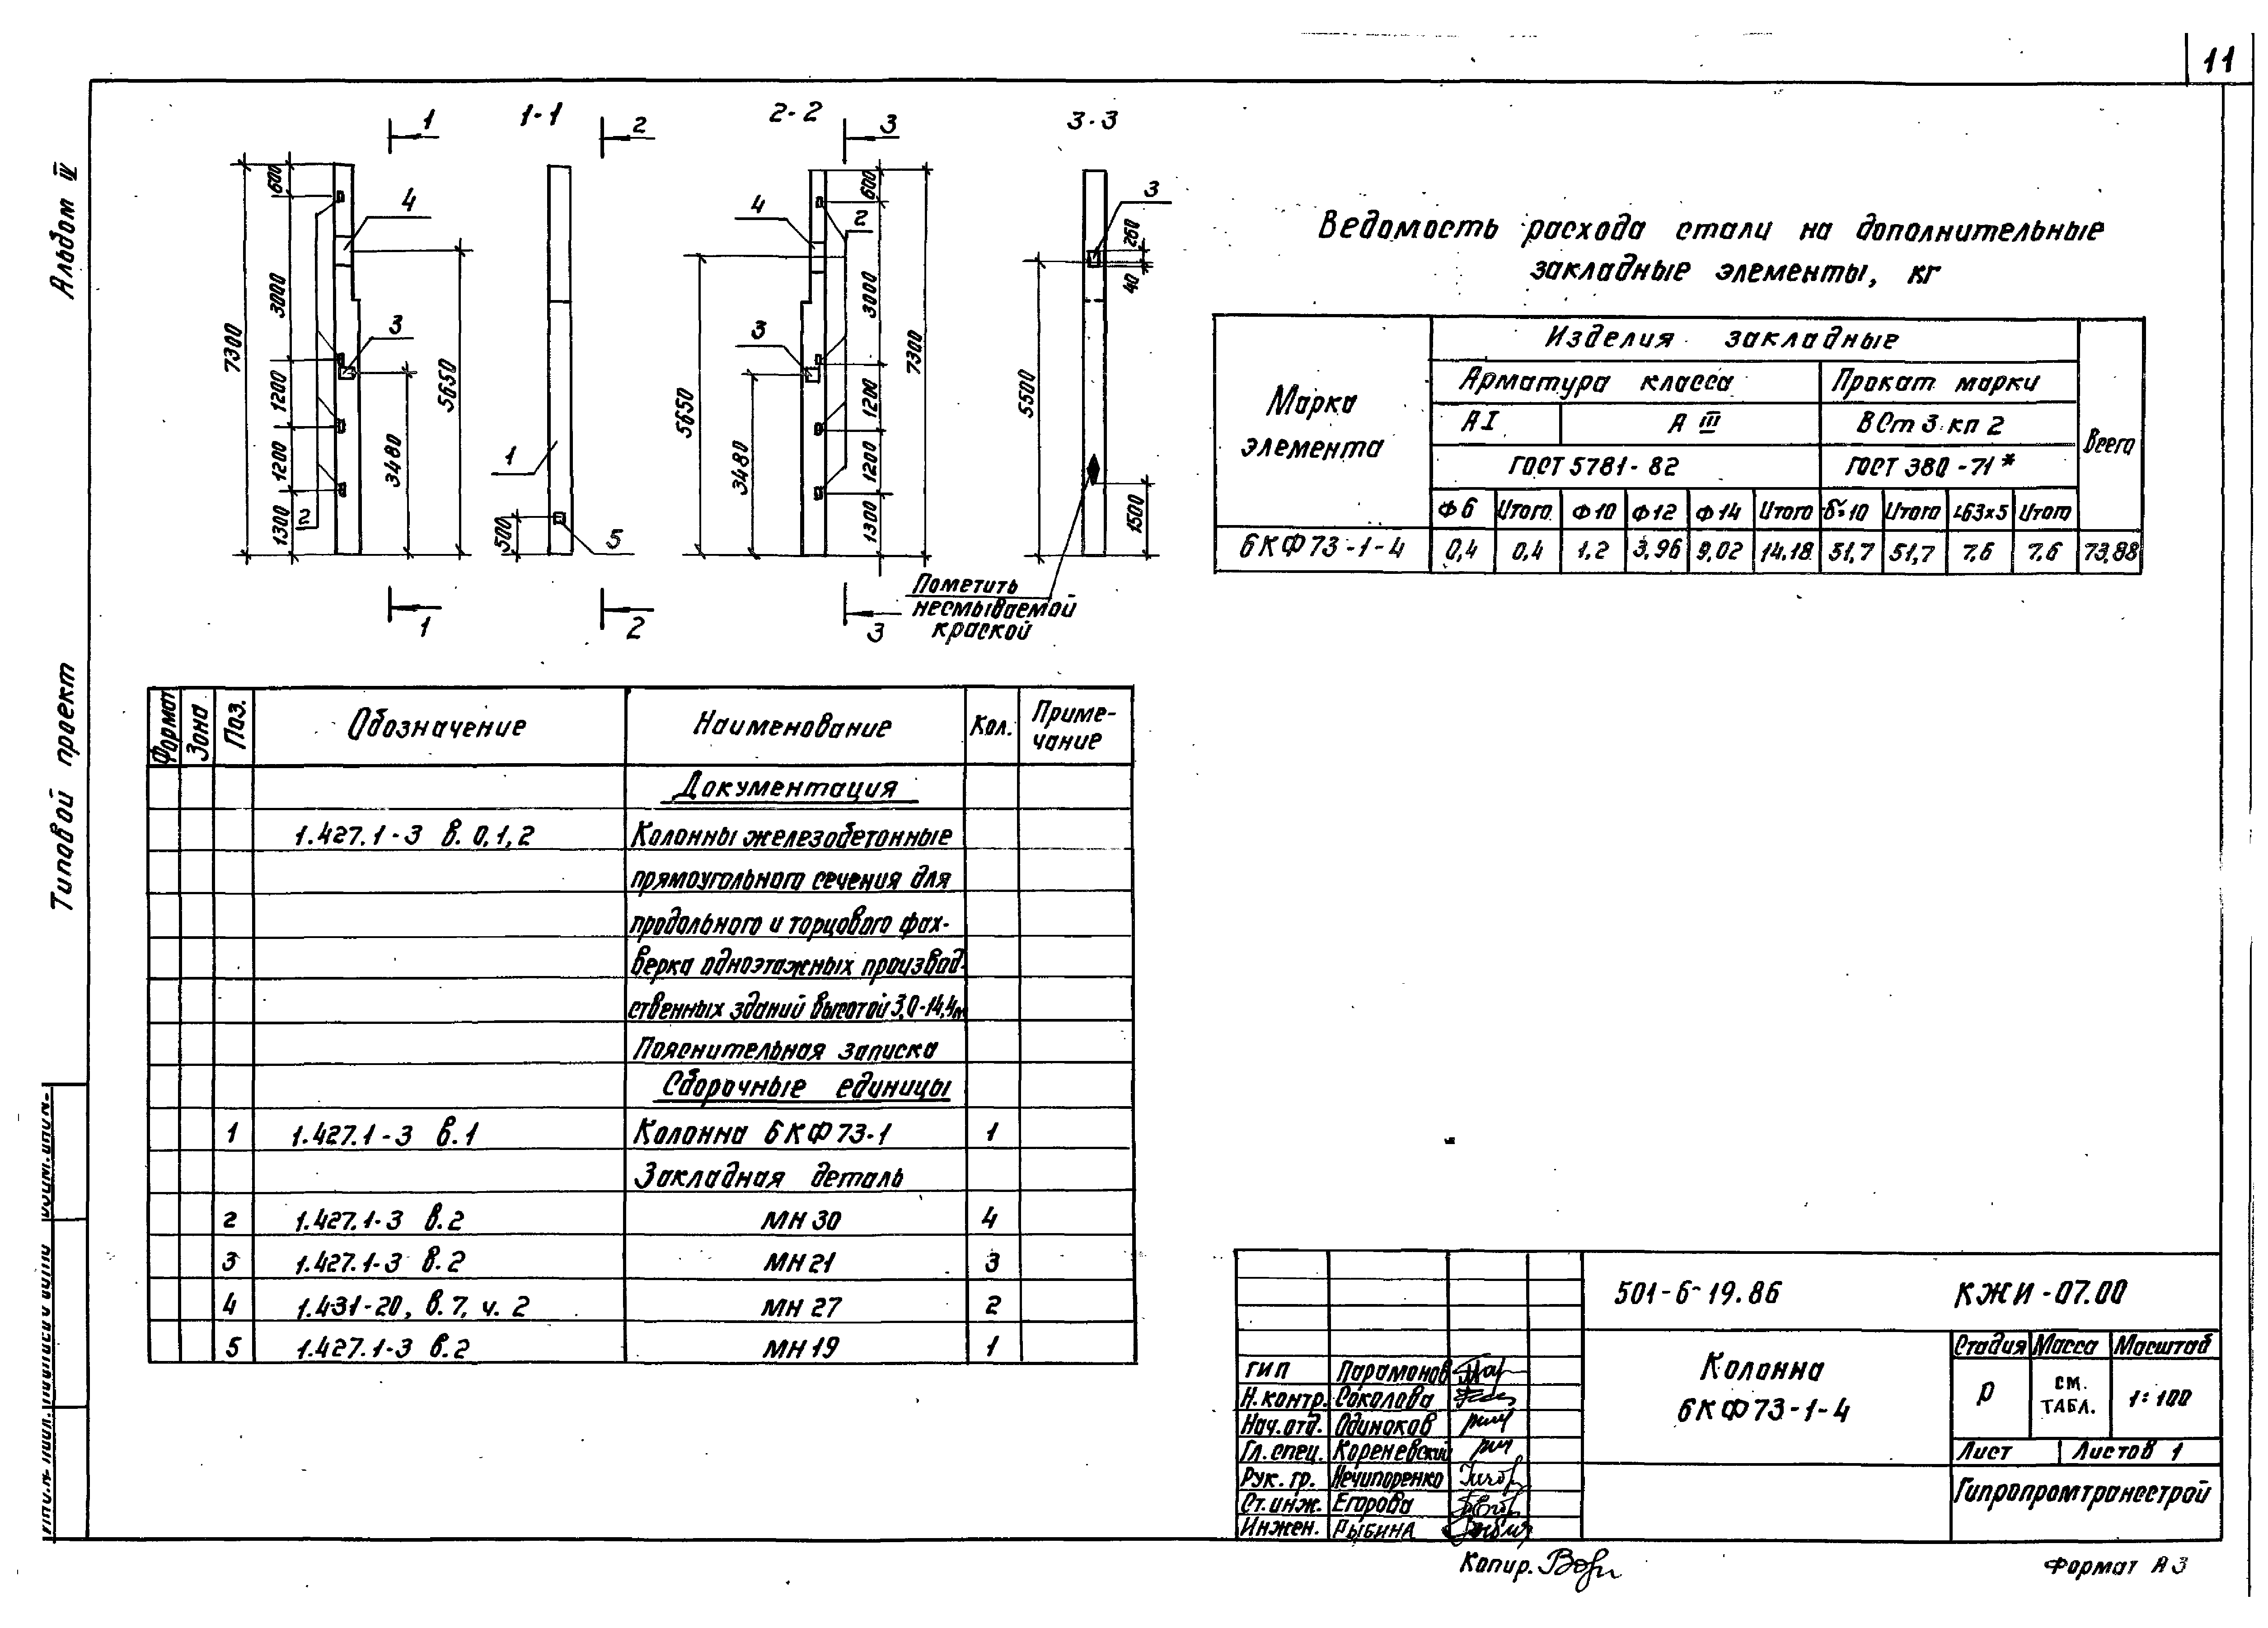 11
Альбом IV
Типовой проект
1
1-1
2
2-2
3
3-3
600
3000
1200
1200
1300
7300
4
3
2
3480
5650
1
500
5
4
3
2
5650
3480
600
3000
1200
1200
1300
7300
3
260
40
5500
1500
1
2
3
Пометить
несмываемой
краской
Ведомость расхода стали на дополнительные
закладные элементы, кг
Марка элемента
Изделия закладные
Всего
Арматура класса
Прокат марки
А I
А III
В Ст 3 кп 2
ГОСТ 5781-82
ГОСТ 380-71*
Ф6 Итого Ф10 Ф12 Ф14 Итого δ=10 Итого L63×5 Итого
6КФ73-1-4 0,4 0,4 1,2 3,96 9,02 14,18 51,7 51,7 7,6 7,6 73,88
Формат Зона Поз. Обозначение Наименование Кол. Приме-
чание
Документация
1.427.1-3 в. 0,1,2 Колонны железобетонные
прямоугольного сечения для
продольного и торцового фах-
верка одноэтажных производ-
ственных зданий высотой 3,0-14,4м
Пояснительная записка
Сборочные единицы
1 1.427.1-3 в.1 Колонна 6КФ73-1 1
Закладная деталь
2 1.427.1-3 в.2 МН 30 4
3 1.427.1-3 в.2 МН 21 3
4 1.431-20, в.7, ч.2 МН 27 2
5 1.427.1-3 в.2 МН 19 1
501-6-19.86 КЖИ-07.00
Колонна
6КФ73-1-4
Стадия Масса Масштаб
Р СМ. ТАБЛ. 1:100
Лист Листов 1
Гипропромтрансстрой
ГИП Парамонов
Н.контр. Соколова
Нач.отд. Одиноков
Гл.спец. Кореневский
Рук.гр. Нечипоренко
Ст.инж. Егорова
Инжен. Рыбина
Копир.
Формат А3